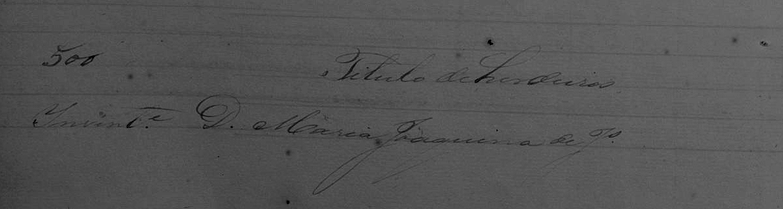 500 Titulo de herdeiros
Invent.e D. Maria Joaquina de Js.